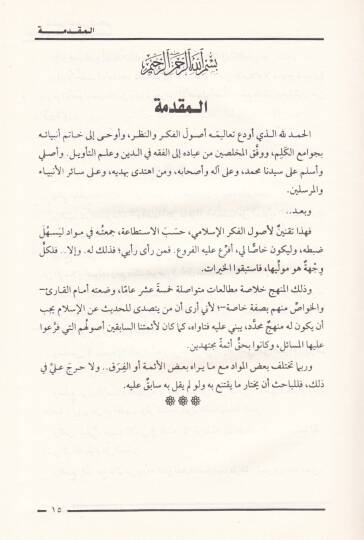 المقدمـة
بسم الله الرحمن الرحيم
المقدمة
الحمـد لله الـذي أودع تعاليمـه أصولَ الفكـر والنظـر، وأوحـى إلى خـاتم أنبيائـه
بجوامع الكَلِم، ووفَّق المخلصين من عباده إلى الفقه في الدين وعلم التأويل. وأصلي
وأسلم على سيدنا محمد، وعلى آله وأصحابه، ومن اهتدى بهديه، وعلى سائر الأنبياء
والمرسلين.
وبعـد..
فهذا تقنينٌ لأصول الفكر الإسلامي، حسَبَ الاستطاعة، جمعتُه في مواد ليَسْهُلَ
ضبطه، وليكون خاصًّا لي، أفرّع عليه الفروع. فمن رأى رأيي؛ فذلك له. وإلا.. فلكلٍّ
وِجْهةٌ هو مولِّيها، فاستبقوا الخيرات.
وذلك المنهج خلاصة مطالعات متواصلة لخمسة عشر عامًا، وضعته أمام القارئ-
والخواصّ منهم بصفة خاصة-؛ لأني أرى أن من يتصدى للحديث عن الإسلام يجب
أن يكون له منهجٌ محدَّد، يبني عليه فتاواه، كما كان لأئمتنا السابقين أصولُهم التي فرَّعوا
عليها المسائل، وكانوا بحقٍّ أئمةً مجتهدين.
وربما تختلف بعض المواد مع ما يراه بعض الأئمة أو الفِرَق.. ولا حرجَ عليَّ في
ذلك، فللباحث أن يختار ما يقتنع به ولو لم يقل به سابقٌ عليه.
۞ ۞ ۞
١٥